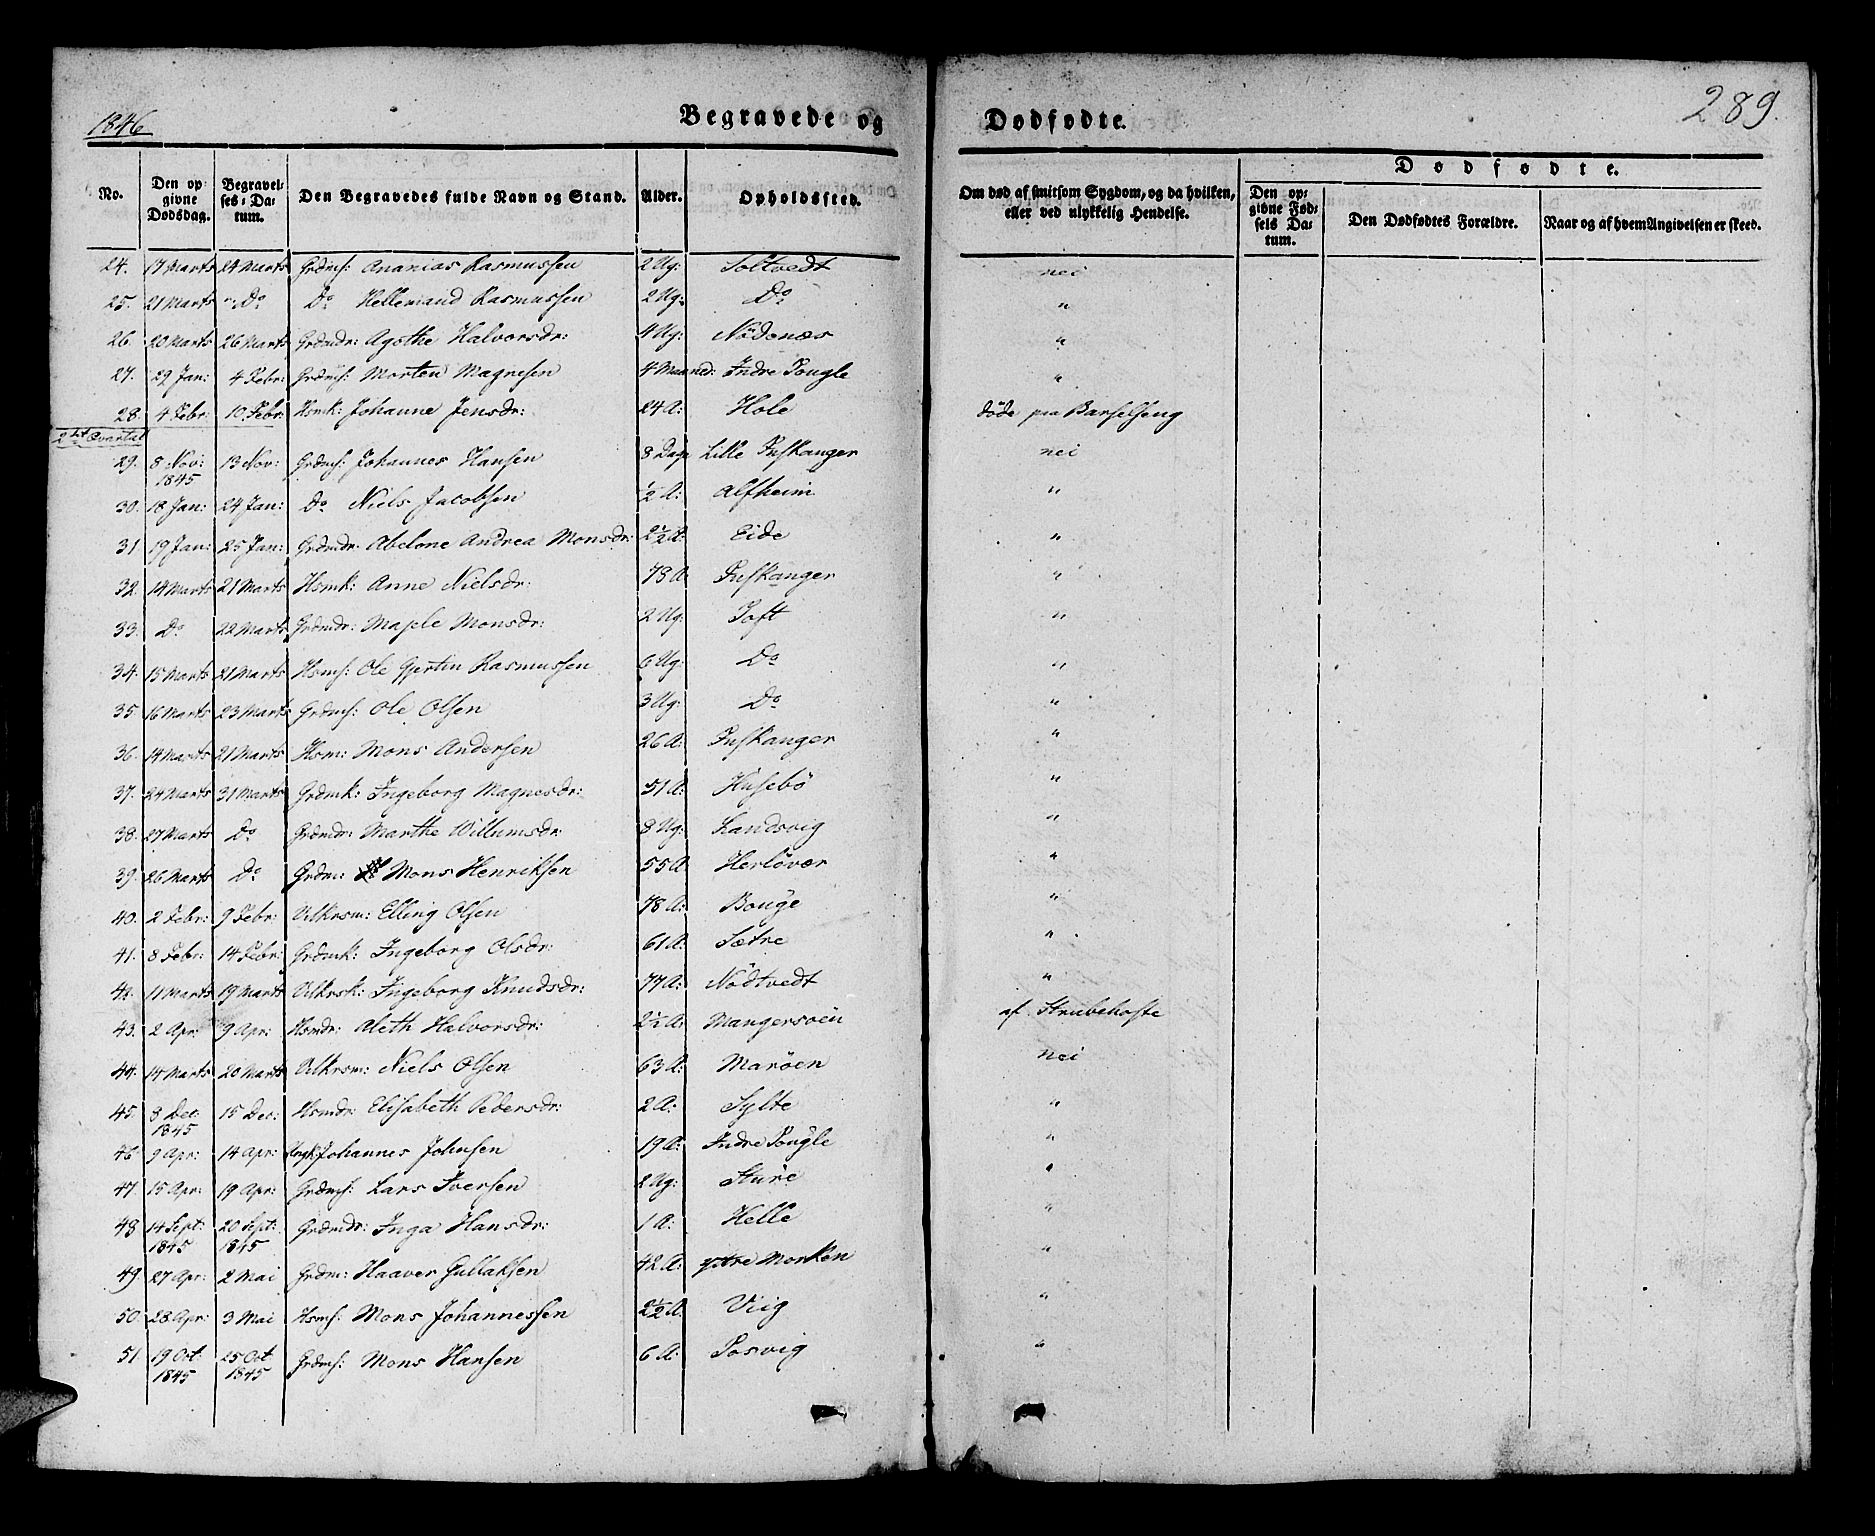 1846
Begravede og Dødfødte.
289.
No. | Den opgivne Dødsdag. | Begravelses-Datum. | Den Begravedes fulde Navn og Stand. | Alder. | Opholdssted. | Om død af smitsom Sygdom, og da hvilken, eller ved ulykkelig Hendelse. | Dødfødte. | Den opgivne Fødsels Datum. | Den Dødfødtes Forældre. | Naar og af hvem Angivelsen er skeed.
24. 17 Marts 24 Marts Grdms: Ananias Rasmussen 2 Ug: Soltvedt nei
25. 21 Marts " Do Do Hellemand Rasmussen 2 Ug: Do "
26. 20 Marts 26 Marts Grdmdr: Agothe Halvorsdr: 4 Ug: Nödenæs "
27. 29 Jan: 4 Febr: Grdms: Morten Magnesen 4 Maaned: Indre Sougle "
28. 4 Febr: 10 Febr: Hsmk: Johanne Jensdr: 24 A: Hole døde paa Barselseng
2det Qvartal
29. 8 Nov: 1845 13 Nov: Grdms: Johannes Hansen 8 Dage Lille Fuskanger nei
30. 18 Jan: 24 Jan: Do Niels Jacobsen ½ A: Alfheim "
31 19 Jan: 25 Jan: Grdmdr. Abelone Andrea Monsdr: 2½ A Eide "
32. 14 Marts 21 Marts Hsmk: Anne Nielsdr: 78 A Fuskanger "
33. Do 22 Marts Grdmdr: Masele Monsdr: 2 Ug: Toft "
34. 15 Marts 21 Marts Hsms: Ole Gjertin Rasmussen 6 Ug: Do "
35 16 Marts 23 Marts Grdms: Ole Olsen 3 Ug: Do "
36. 14 Marts 21 Marts Hsm: Mons Andersen 26 A: Fuskanger "
37. 24 Marts 31 Marts Grdmk: Ingeborg Magnesdr: 51 A: Husebö "
38. 27 Marts Do Grdmdr: Marthe Willumsdr: 8 Ug: Landsvig "
39. 26 Marts Do Grdm: Mons Henriksen 55 A: Herløvær "
40. 2 Febr: 9 Febr: Vilkrsm: Elling Olsen 78 A: Bouge "
41. 8 Febr: 14 Febr: Grdmk: Ingeborg Olsdr: 61 A: Sætre "
42. 11 Marts 19 Marts Vilkrsk: Ingeborg Knudsdr: 77 A: Nödtvedt "
43. 2 Apr: 9 Apr: Hsmdr: Aleth Halvorsdr: 2½ A: Mangersöen af Strubehoste
44. 14 Marts 20 Marts Vilkrsm: Niels Olsen 63 A: Maröen nei
45. 8 Dec: 1845 15 Dec: Hsmdr: Elisabeth Pedersdr: 2 A: Sylte "
46. 9 Apr: 14 Apr: Ungk: Johannes Johnsen 19 A: Indre Sougle "
47. 15 Apr: 19 Apr: Grdms: Lars Iversen 2 Ug: Sture "
48 14 Sept: 1845 20 Sept: 1845 Grdmdr: Inga Hansdr: 1 A: Helle "
49. 27 Apr: 2 Mai Grdm: Haaver Gullaksen 42 A: ytre Morken "
50. 28 Apr: 3 Mai Hsms: Mons Johannessen 2½ A. Viig "
51 19 Oct: 1845 25 Oct 1845 Grdms: Mons Hansen 6 A: Tosvig "